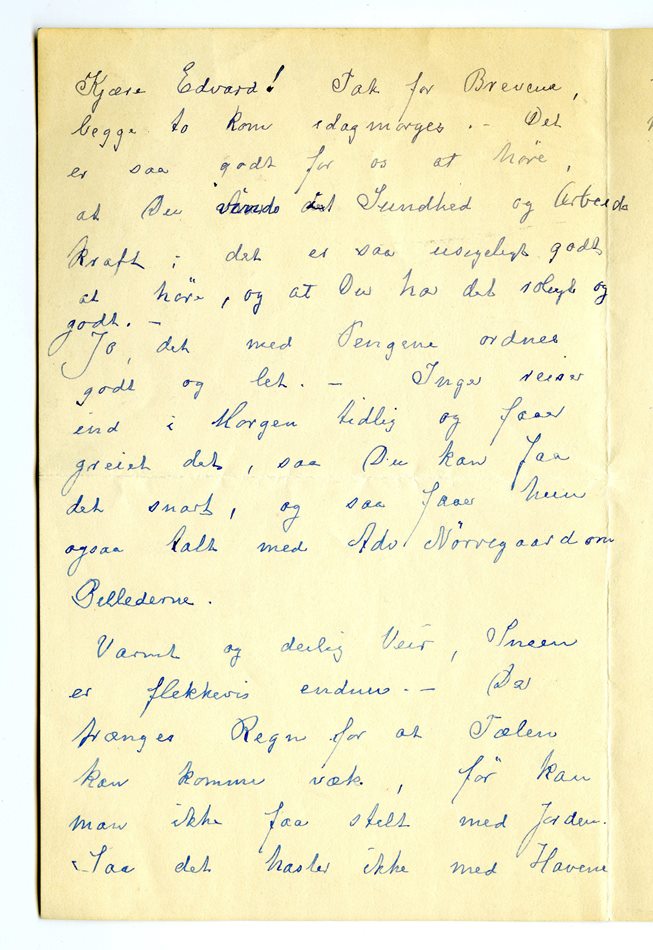 Kjære Edvard! Tak for Brevene,
begge to kom idagmorges. – Det
er saa godt for os at höre,
at Du Sundhed og Arbeids
kraft; det er saa usigeligt godt
at höre, og at Du har det roligt og
godt. –
Jo, det med Pengene ordnes
godt og let. – Inger reiser
ind i Morgen tidlig og faaer
greiet det, saa Du kan faa
det snart, og saa faaer hun
ogsaa talt med Adv Nörregaard om
Billederne.
Varmt og deilig Veir, Sneen
er flekkevis endnu. – Der
trænges Regn for at Tælen
kan komme væk, för kan
man ikke faa stelt med Jorden.
Saa det haster ikke med Havene